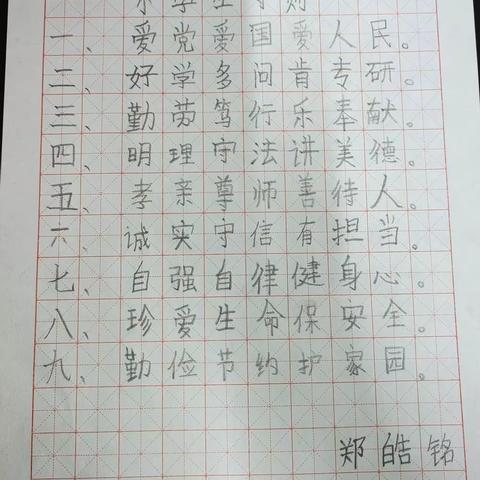 小学生守则
一、爱党爱国爱人民。
二、好学多问肯专研。
三、勤劳笃行乐奉献。
四、明理守法讲美德。
五、孝亲尊师善待人。
六、诚实守信有担当。
七、自强自律健身心。
八、珍爱生命保安全。
九、勤俭节约护家园。
郑皓铭